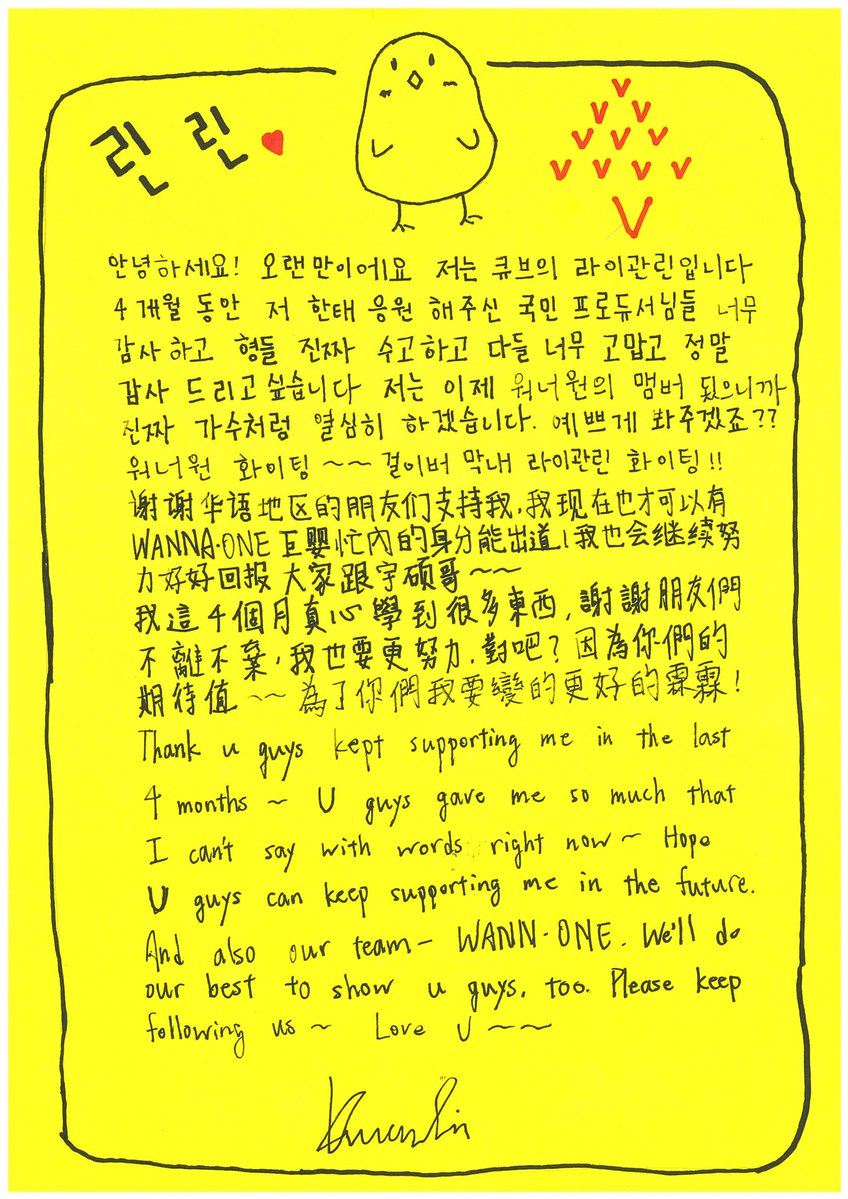 린 린
안녕하세요! 오랜만이에요 저는 큐브의 라이관린입니다
4개월 동안 저 한태 응원 해주신 국민 프로듀서님들 너무
감사하고 형들 진짜 수고하고 다들 너무 고맙고 정말
감사 드리고 싶습니다 저는 이제 워너원의 맴버 됬으니까
진짜 가수처럼 열심히 하겠습니다. 예쁘게 봐주겠죠??
워너원 화이팅~~ 걸이버 막내 라이관린 화이팅!!
謝謝华语地区的朋友们支持我,我现在也才可以有
WANNA·ONE 巨婴忙內的身分能出道!我也会继续努
力好好回报大家跟宇硕哥~~
我這4個月真心學到很多東西,謝謝朋友們
不離不棄,我也要更努力,對吧?因為你們的
期待值~~為了你們我要變的更好的霖霖!
Thank u guys kept supporting me in the last
4 months ~ U guys gave me so much that
I can't say with words right now~ Hope
U guys can keep supporting me in the future.
And also our team- WANN·ONE. We'll do
our best to show u guys, too. Please keep
following us ~ Love U ~~